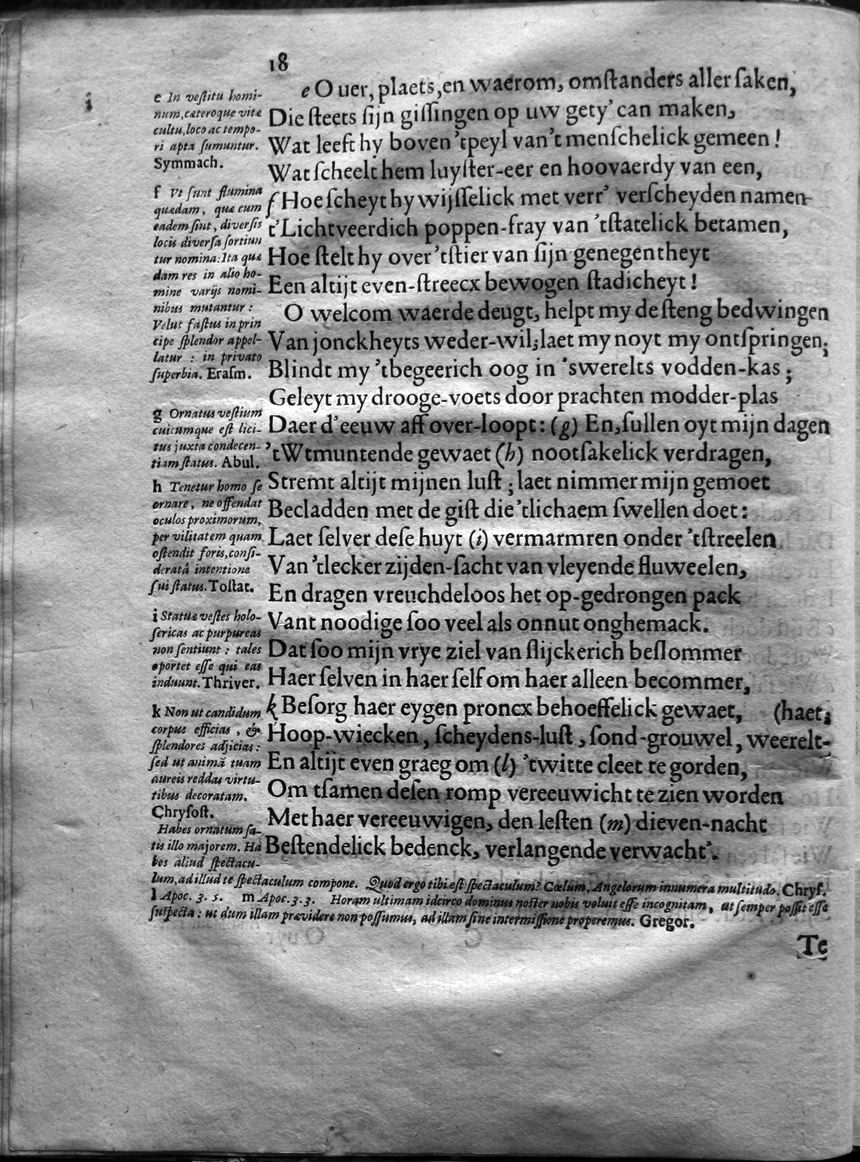 18
e O uer, plaets, en waerom, omſtanders aller ſaken,
Die ſteets ſijn giſſingen op uw gety' can maken,
Wat leeft hy boven 'tpeyl van't menſchelick gemeen!
Wat ſcheelt hem luyſter-eer en hoovaerdy van een,
f Hoe ſcheyt hy wijſſelick met verr' verſcheyden namen
t'Lichtveerdich poppen-fray van 'tſtatelick betamen,
Hoe ſtelt hy over 'tſtier van ſijn genegentheyt
Een altijt even-ſtreecx bewogen ſtadicheyt!
O welcom waerde deugt, helpt my de ſteng bedwingen
Van jonckheyts weder-wil, laet my noyt my ontſpringen;
Blindt my 'tbegeerich oog in 'swerelts vodden-kas;
Geleyt my drooge-voets door prachten modder-plas
Daer d'eeuw aff over-loopt: (g) En, ſullen oyt mijn dagen
'tWtmuntende gewaet (h) nootſakelick verdragen,
Stremt altijt mijnen luſt; laet nimmer mijn gemoet
Becladden met de giſt die 'tlichaem ſwellen doet:
Laet ſelver deſe huyt (i) vermarmren onder 'tſtreelen
Van 'tlecker zijden-ſacht van vleyende fluweelen,
En dragen vreuchdeloos het op-gedrongen pack
Vant noodige ſoo veel als onnut onghemack.
Dat ſoo mijn vrye ziel van ſlijckerich beſlommer
Haer ſelven in haer ſelf om haer alleen becommer,
k Beſorg haer eygen proncx behoeffelick gewaet, (haet,
Hoop-wiecken, ſcheydens-luſt, ſond-grouwel, weerelt-
En altijt even graeg om (l) 'twitte cleet te gorden,
Om tſamen deſen romp vereeuwicht te zien worden
Met haer vereeuwigen, den leſten (m) dieven-nacht
Beſtendelick bedenck, verlangende verwacht'.
e In veſtitu homi-
num, cæteroque vitæ
cultu, loco ac tempo-
ri apta ſumuntur.
Symmach.
f Vt ſunt flumina
quædam, quæ cum
eadem ſint, diverſis
locis diverſa ſortiun
tur nomina: Ita quæ
dam res in alio ho-
mine varijs nomi-
nibus mutantur:
Velut faſtus in prin
cipe ſplendor appel-
latur: in privato
ſuperbia. Eraſm.
g Ornatus veſtium
cuicumque eſt lici-
tus juxta condecen-
tiam ſtatus. Abul.
h Tenetur homo ſe
ornare, ne offendat
oculos proximorum,
per vilitatem quam
oſtendit foris, conſi-
deratâ intentione
ſui ſtatus. Toſtat.
i Statuæ veſtes holo-
ſericas ac purpureas
non ſentiunt: tales
oportet eſſe qui eas
induunt. Thriver.
k Non ut candidum
corpus efficias, &
ſplendores adjicias:
ſed ut animã tuam
aureis reddas virtu-
tibus decoratam.
Chryſoſt.
Habes ornatum ſa-
tis illo majorem. Ha
bes aliud ſpectacu-
lum, ad illud te ſpectaculum compone. Quod ergo tibi eſt ſpectaculum? Cœlum, Angelorum innumera multitudo. Chryſ.
l Apoc. 3. 5. m Apoc. 3.3. Horam ultimam idcirco dominus noſter nobis voluit eſſe incognitam, ut ſemper poſſit eſſe
ſuſpecta: ut dum illam prævidere non poſſumus, ad illam ſine intermiſſione properemus. Gregor.
Te